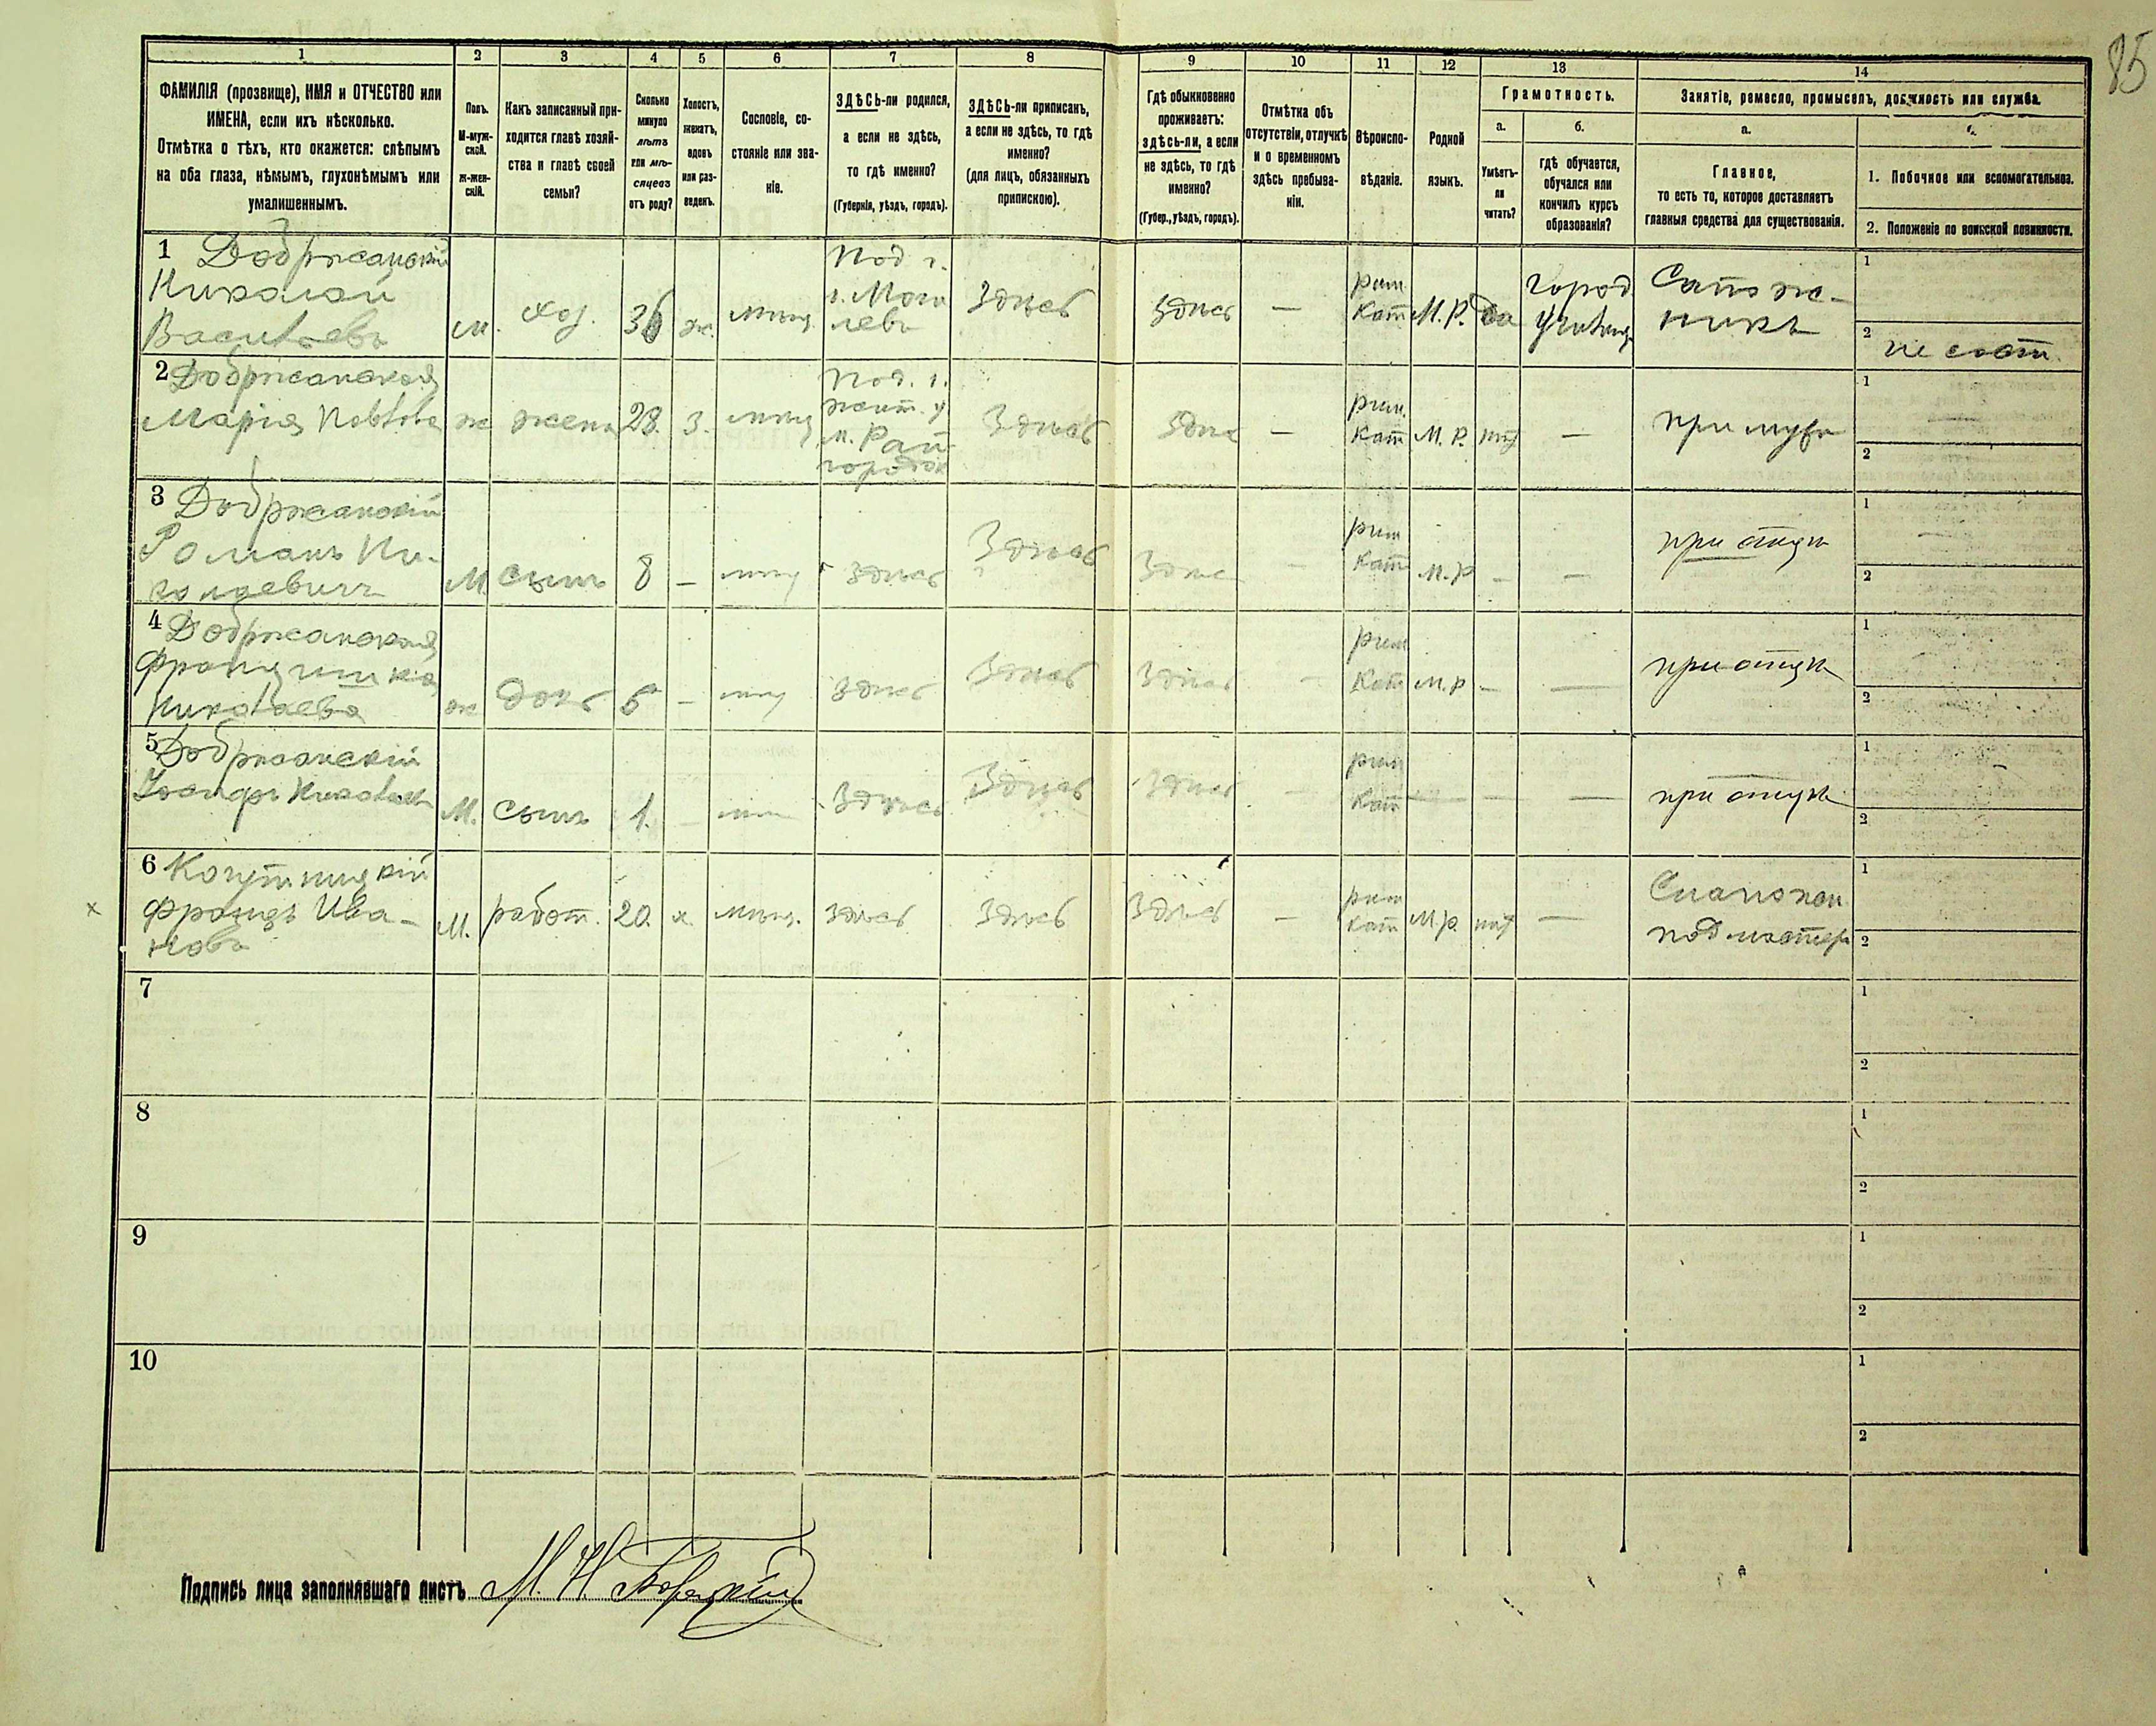 85
1
2
3
4
5
6
7
8
9
10
11
12
13
14
ФАМИЛІЯ (прозвище), ИМЯ и ОТЧЕСТВО или
ИМЕНА, если ихъ нѣсколько.
Отмѣтка о тѣхъ, кто окажется: слѣпымъ
на оба глаза, нѣмымъ, глухонѣмымъ или
умалишеннымъ.
Полъ.
М-муж-
ской.
ж-жен-
скій.
Какъ записанный при-
ходится главѣ хозяй-
ства и главѣ своей
семьи?
Сколько
минуло
лѣтъ
или мѣ-
сяцевъ
отъ роду?
Холостъ,
женатъ,
вдовъ
или раз-
веденъ.
Сословіе, со-
стояніе или зва-
ніе.
ЗДѢСЬ-ли родился,
а если не здѣсь,
то гдѣ именно?
(Губернія, уѣздъ, городъ).
ЗДѢСЬ-ли приписанъ,
а если не здѣсь, то гдѣ
именно?
(для лицъ, обязанныхъ
припискою).
Гдѣ обыкновенно
проживаетъ:
здѣсь-ли, а если
не здѣсь, то гдѣ
именно?
(Губер., уѣздъ, городъ).
Отмѣтка объ
отсутствіи, отлучкѣ
и о временномъ
здѣсь пребыва-
ніи.
Вѣроиспо-
вѣданіе.
Родной
языкъ.
Грамотность.
а.
Умѣетъ-
ли
читать?
б.
гдѣ обучается,
обучался или
кончилъ курсъ
образованія?
Занятіе, ремесло, промыселъ, должность или служба.
а.
Главное,
то есть то, которое доставляетъ
главныя средства для существованія.
б.
1. Побочное или вспомогательное.
2. Положеніе по воинской повинности.
1 Добржанскій
Николай
Васильевъ
м.
хоз.
36
ж.
мѣщ.
Под г.
г. Моги
левъ
Здѣсь
Здѣсь
—
рим.
Кат
М. Р.
да
город
училищ
Сапож-
никъ
1
2
не сост.
2 Добржанская
Марія Павлова
ж
жена
28.
З.
мѣщ
Под. г.
жит. у
м. Рай
городок
Здѣсь
Здѣсь
—
рим.
Кат
М. Р.
нѣт
—
при мужѣ
1
—
2
3 Добржанскій
Романъ Ни-
колаевичъ
М.
сынъ
8
—
мѣщ
Здѣсь
Здѣсь
Здѣсь
—
рим
Кат
М. Р
—
—
при отцѣ
1
—
2
4 Добржанская
Францишка
Николаева
ж
дочь
—
мѣщ
Здѣсь
Здѣсь
Здѣсь
—
рим
Кат
М. Р
—
—
при отцѣ
1
2
5 Добржанскій
М.
сынъ
1.
—
мѣщ
Здѣсь
Здѣсь
Здѣсь
—
рим
Кат
—
—
—
при отцѣ
1
2
х
6
Францъ Ива-
новъ
М.
работ.
20.
х.
мѣщ.
Здѣсь
Здѣсь
Здѣсь
—
рим
Кат
М. Р.
нѣт
—
подмастер
1
2
7
1
2
8
1
2
9
1
2
10
1
2
Подпись лица заполнявшаго листъ